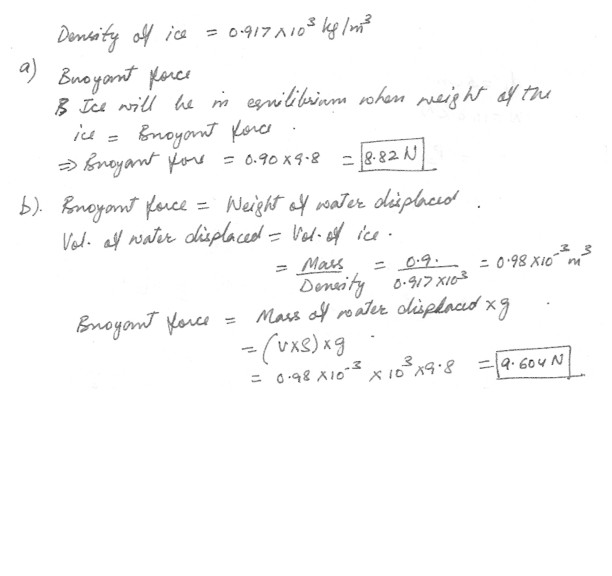 Density of ice = 0.917 × 10³ kg/m³
a) Buoyant force
B Ice will be in equilibrium when weight of the
ice = Buoyant force .
⇒ Buoyant fore = 0.90 × 9.8 = 8.82 N
b). Buoyant force = Weight of water displaced .
Vol. of water displaced = Vol. of ice .
= Mass / Density = 0.9. / 0.917 × 10³ = 0.98 × 10⁻³ m³
Buoyant force = Mass of water displaced × g .
= (V × S) × g
= 0.98 × 10⁻³ × 10³ × 9.8 = 9.604 N